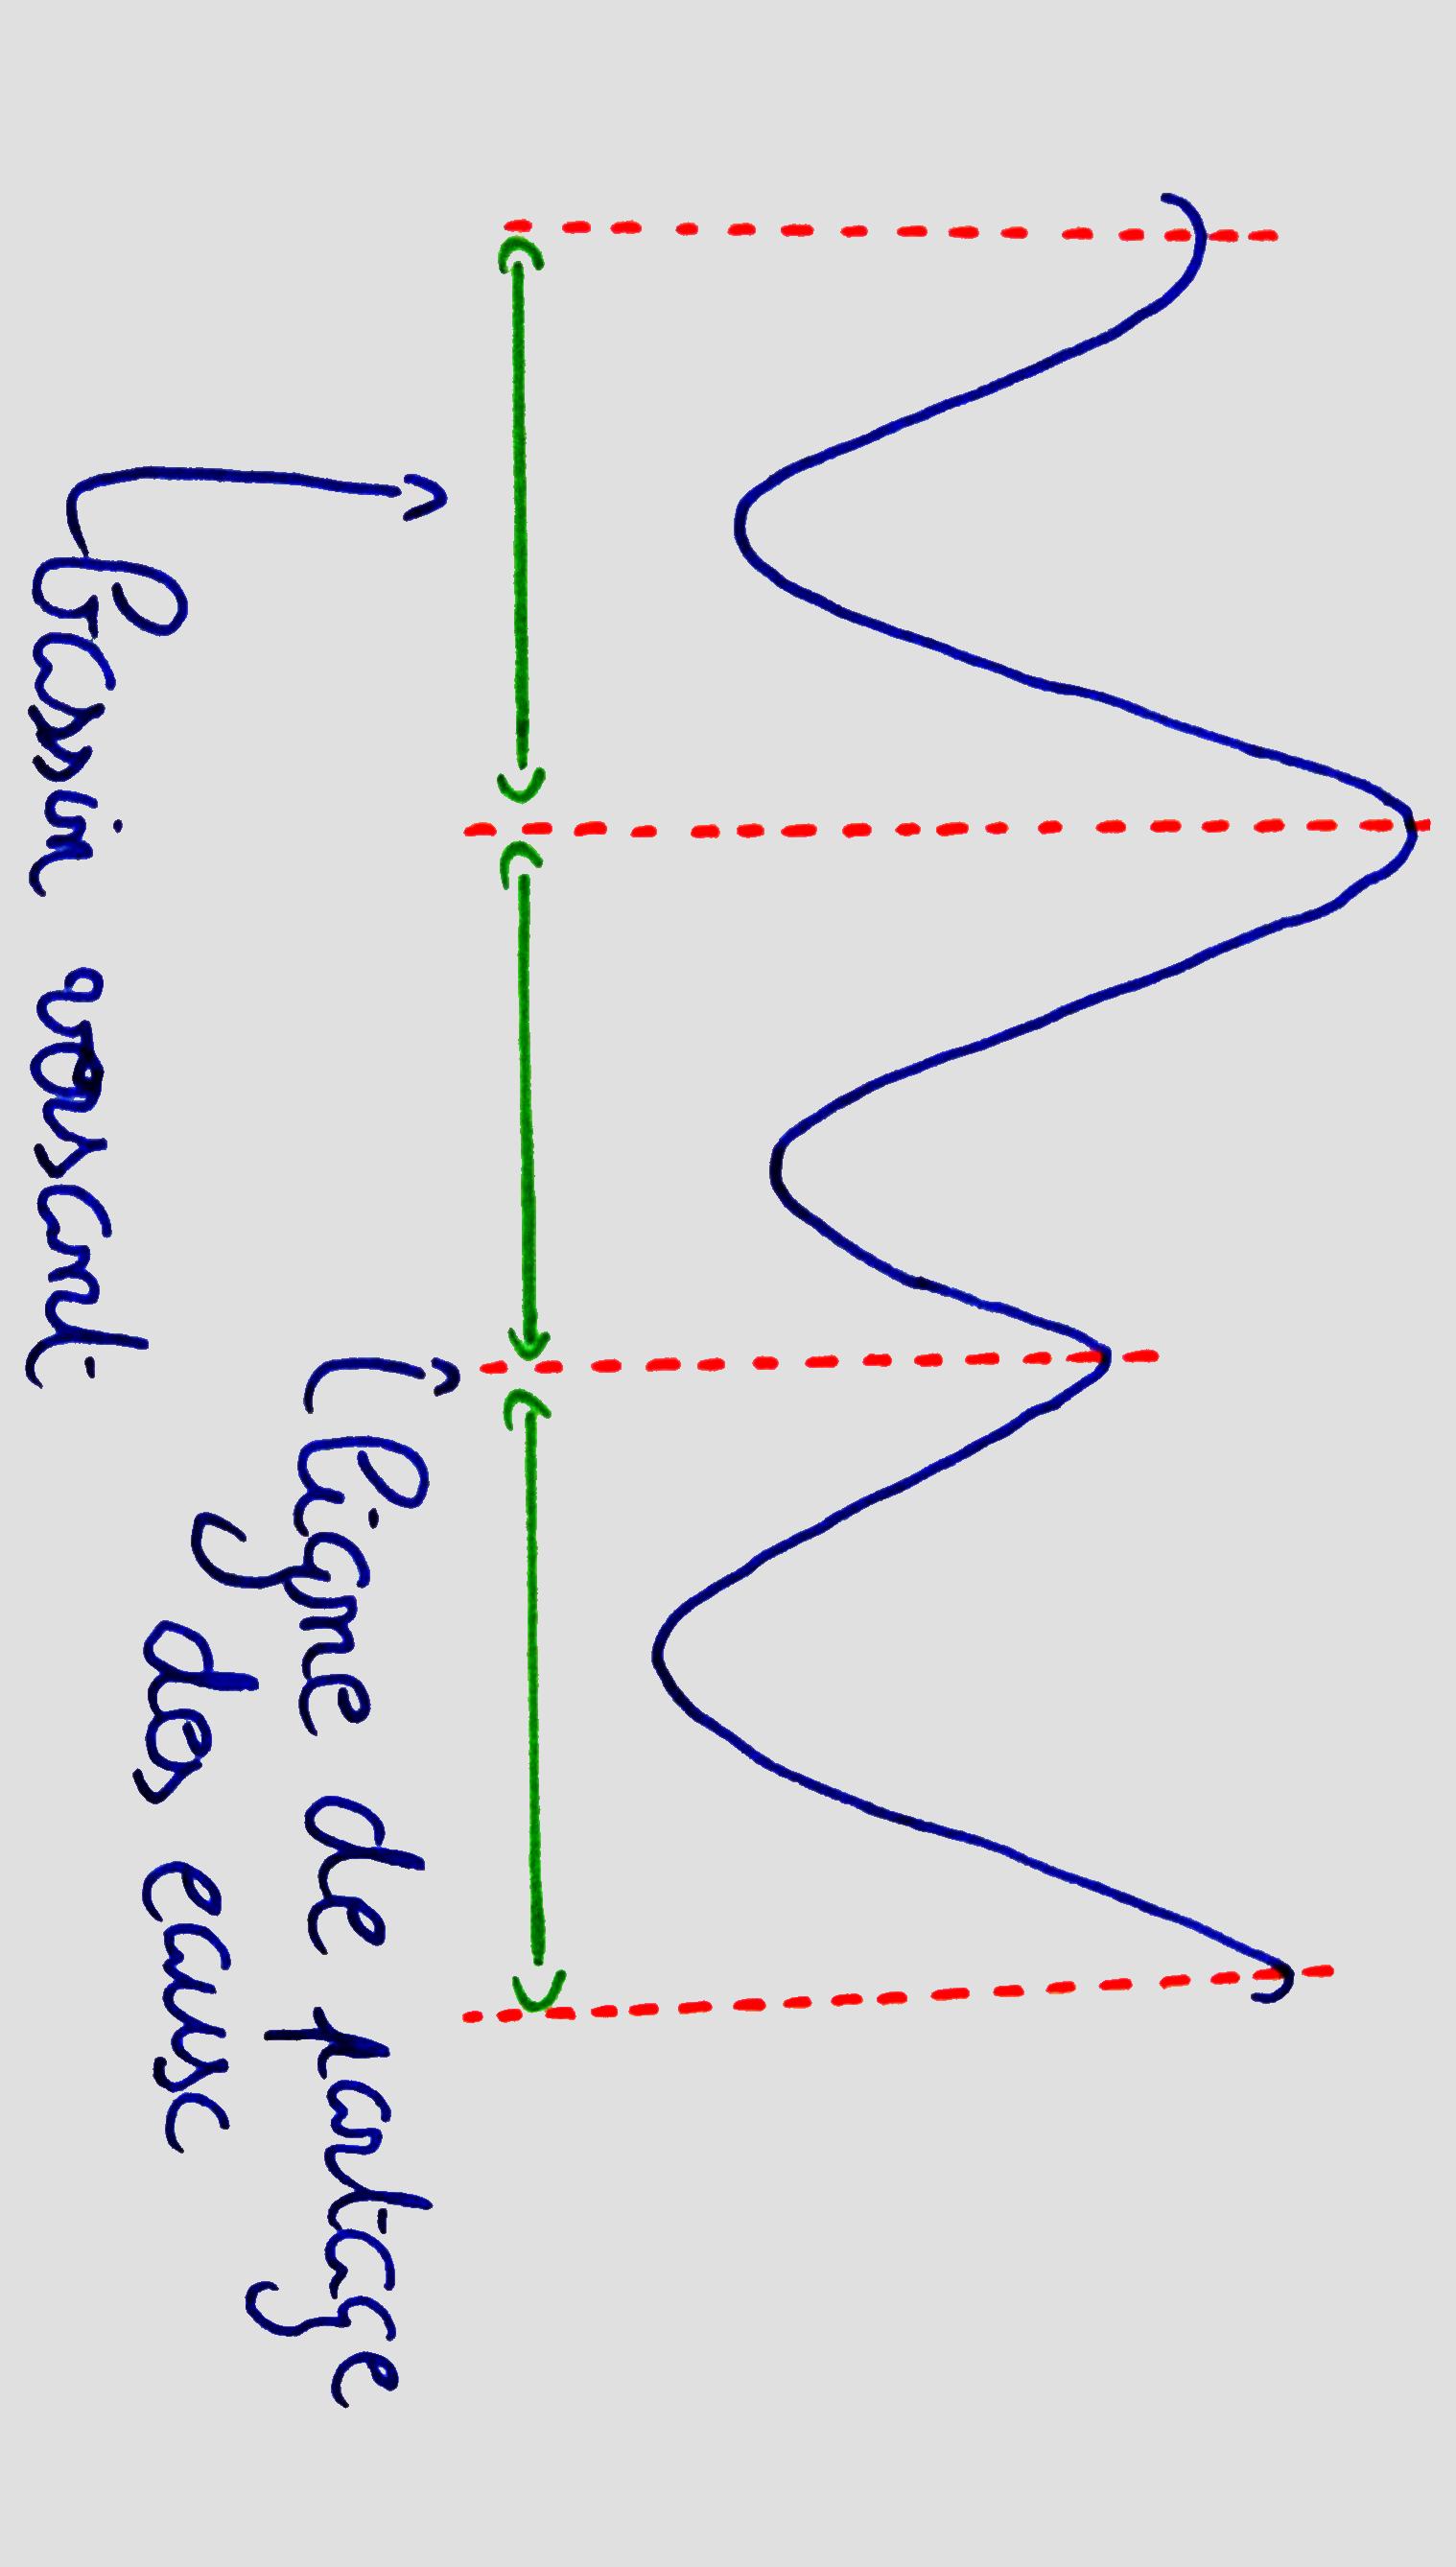 ligne de partage
des eaux
bassin versant